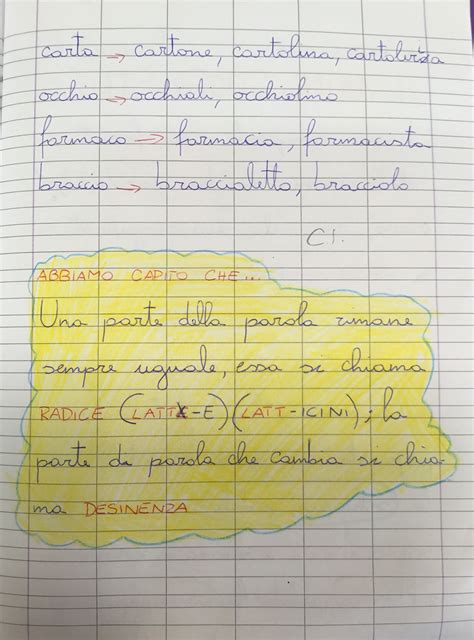 carta → cartone, cartolina, cartoleria
occhio → occhiali, occhiolino
farmaco → farmacia, farmacista
braccio → braccialetto, bracciolo
C1.
ABBIAMO CAPITO CHE...
Una parte della parola rimane
sempre uguale, essa si chiama
RADICE (LATT-E) (LATT-ICINI); la
parte di parola che cambia si chia-
ma DESINENZA